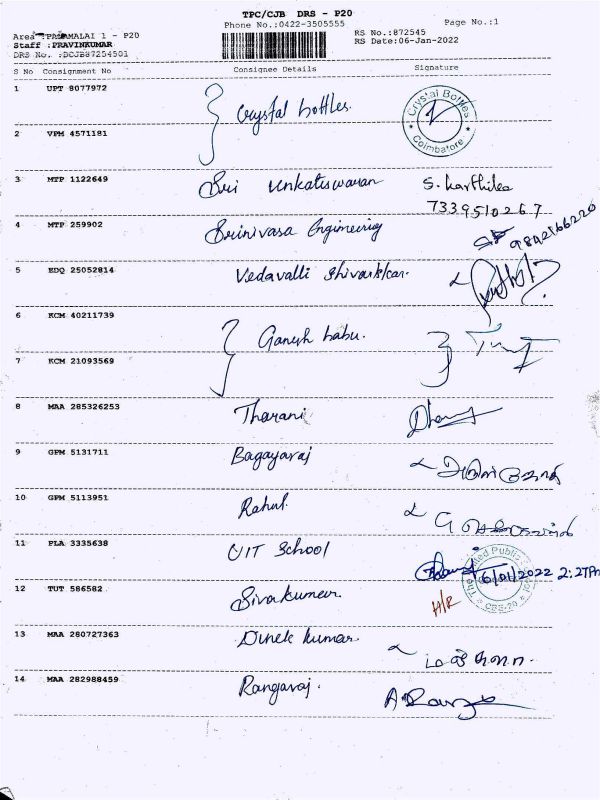 TPC/CJB DRS - P20
Phone No.:0422-3505555
Page No.:1
RS No.:872545
RS Date:06-Jan-2022
Staff :PRAVINKUMAR
DRS No. :DCJB87254501
S No Consignment No Consignee Details Signature
1 UPT 8077972 Crystal bottles.
Crystal Bottles
Coimbatore
2 VPM 4571181
3 MTP 1122649 Sri S. Karthika
7339510267
4 MTP 259902 Srinivasa Engineering 9842166220
5 EDQ 25052814 Vedavalli
6 KCM 40211739 Ganesh babu.
7 KCM 21093569
8 MAA 285326253 Tharani
9 GPM 5131711 Bagayaraj
10 GPM 5113951 Rahul.
11 PLA 3335638 UIT School
6/01/2022 2:27PM
CBE-20
12 TUT 586582 Sivakumar H/R
13 MAA 280727363 Dinek kumar.
14 MAA 282988459 Rangaraj.